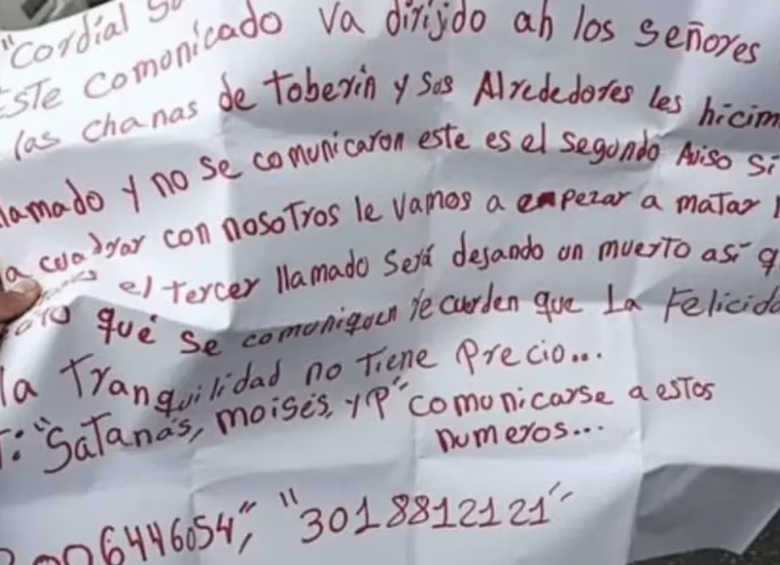 "Cordial
Este comonicado va dirijdo ah los señores
las chanas de Toberin y sus Alrededores les hicim
lamado y no se comunicaron este es el segundo Aviso si
a cuadrar con nosotros le vamos a empezar a matar
el tercer llamado será dejando un muerto así q
qué se comuniquen recuerden que la Felicida
la Tranquilidad no tiene precio...
T: "Satanás, moisés, y P" comonicarse a estos
numeros...
006446054", "3018812121"